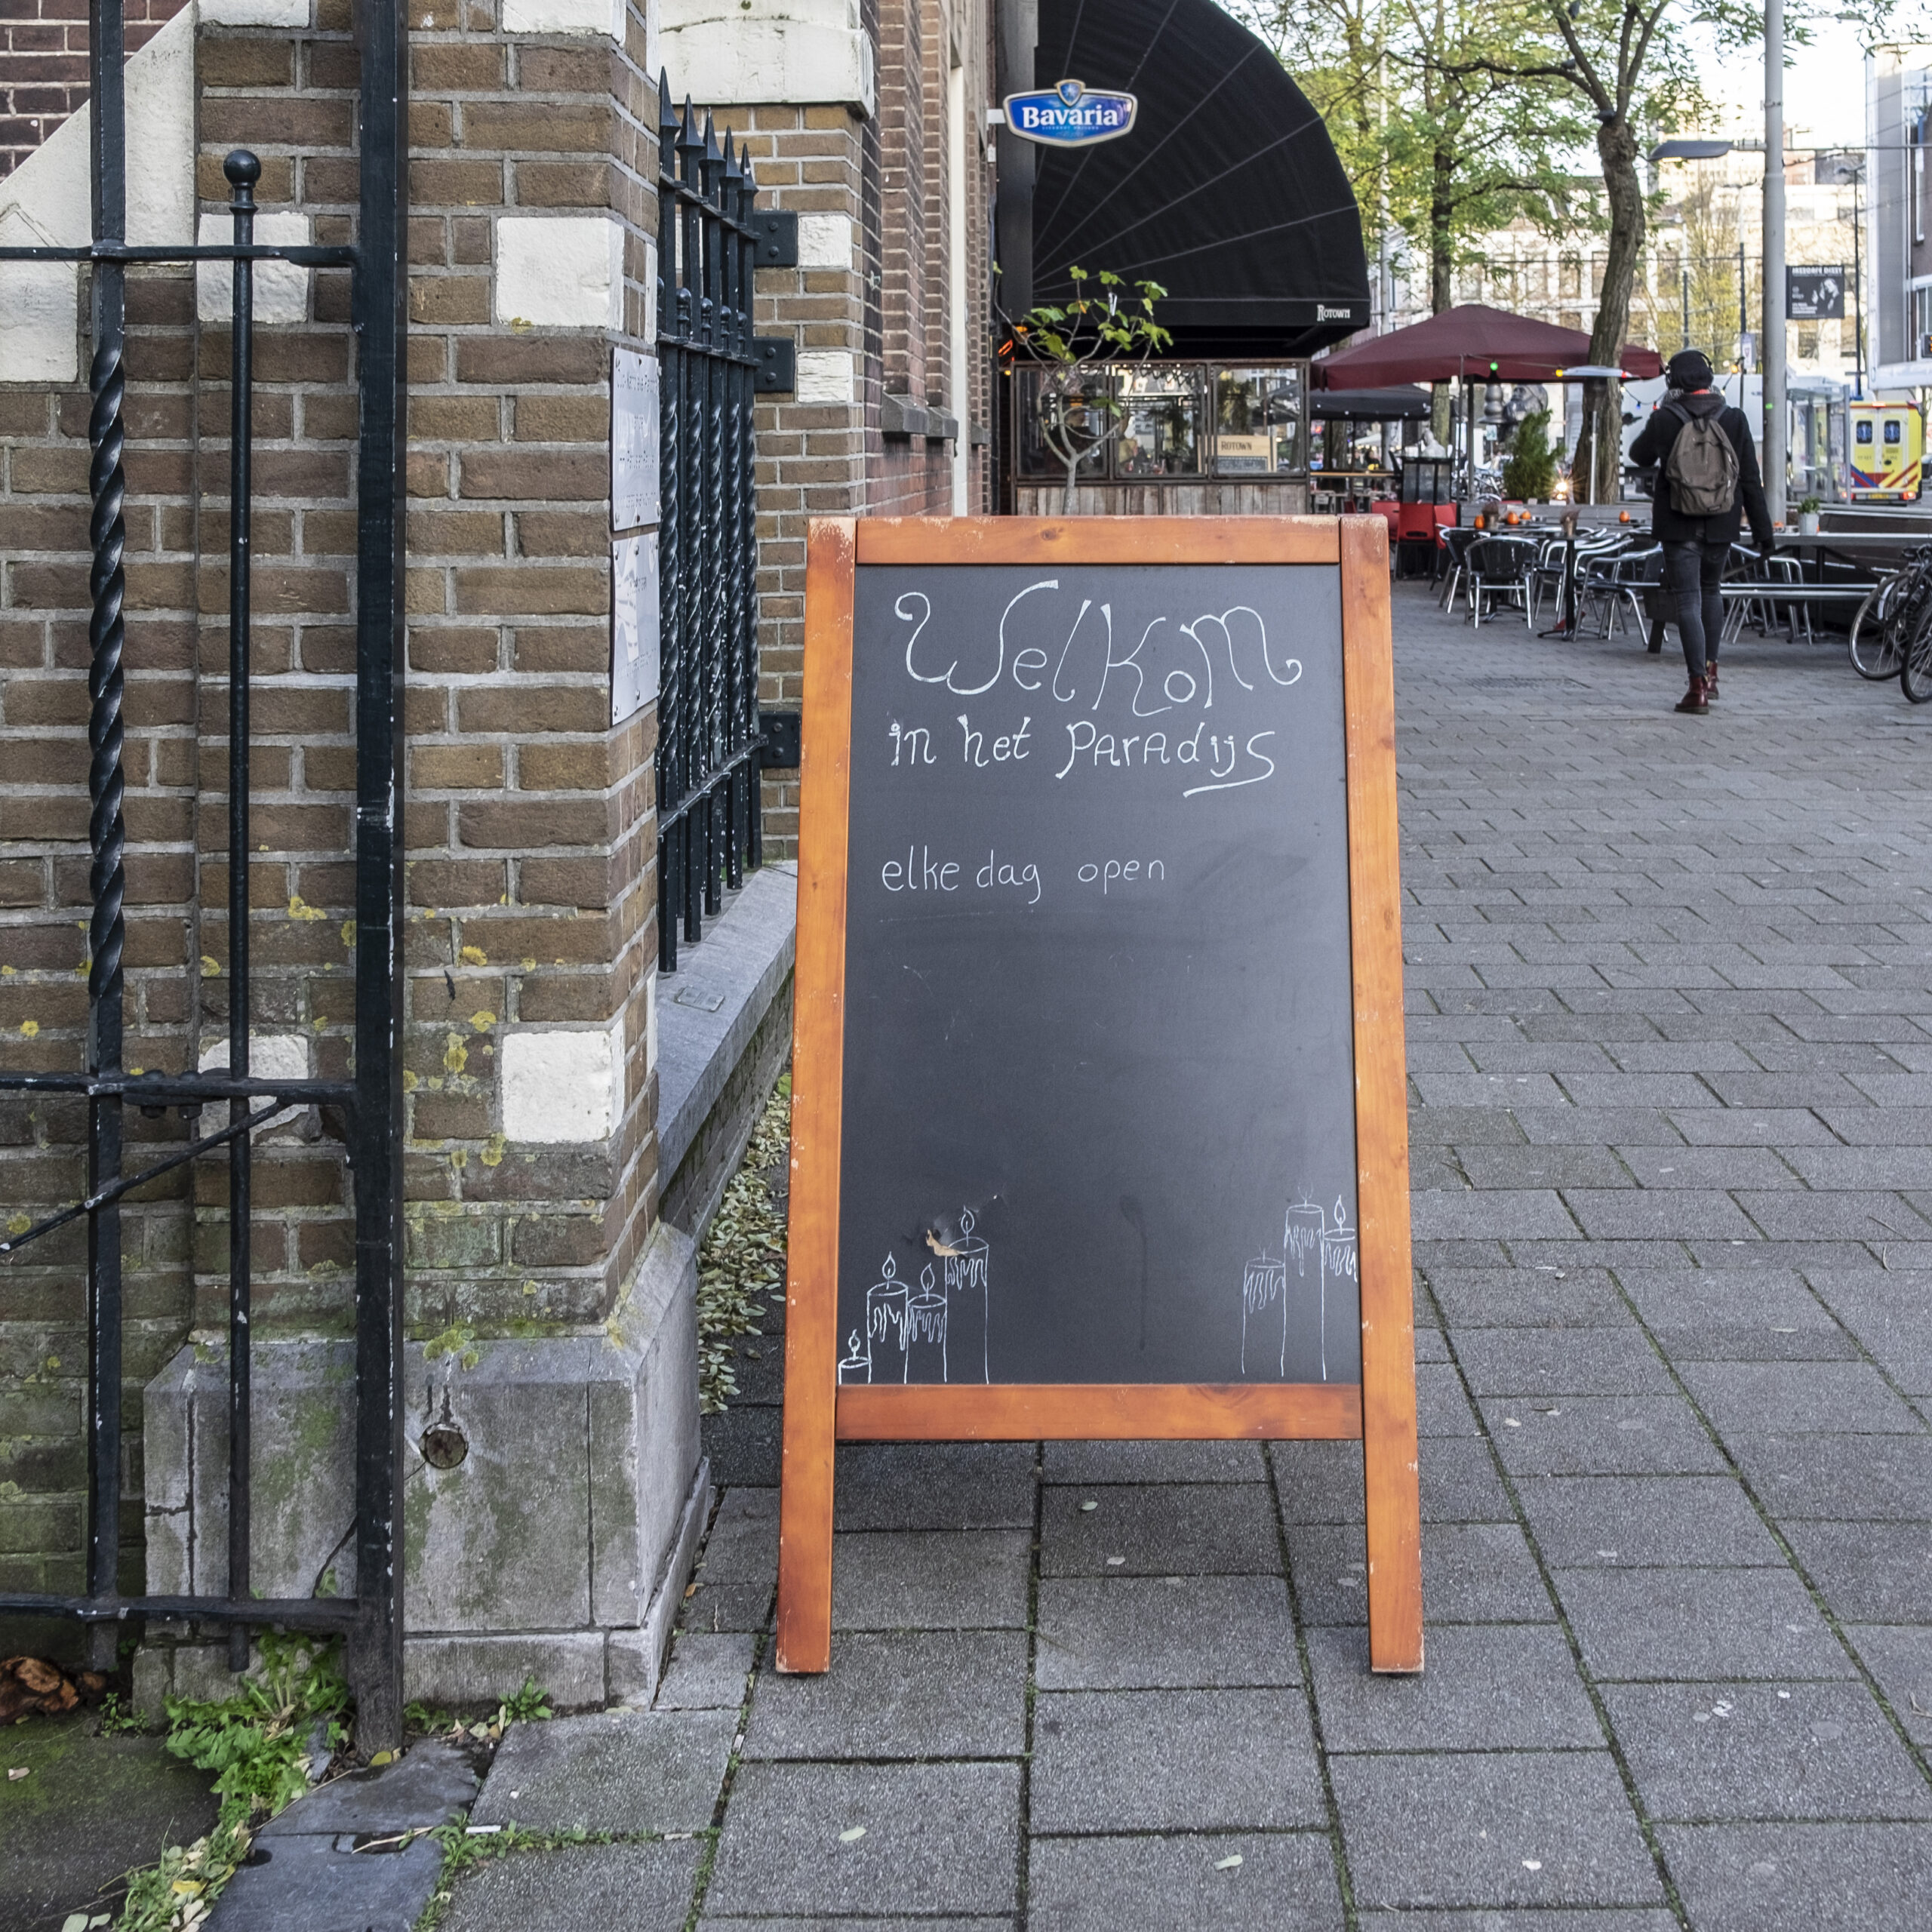 Bavaria
ROTOWN
ROTOWN
Welkom
in het Paradijs
elke dag open